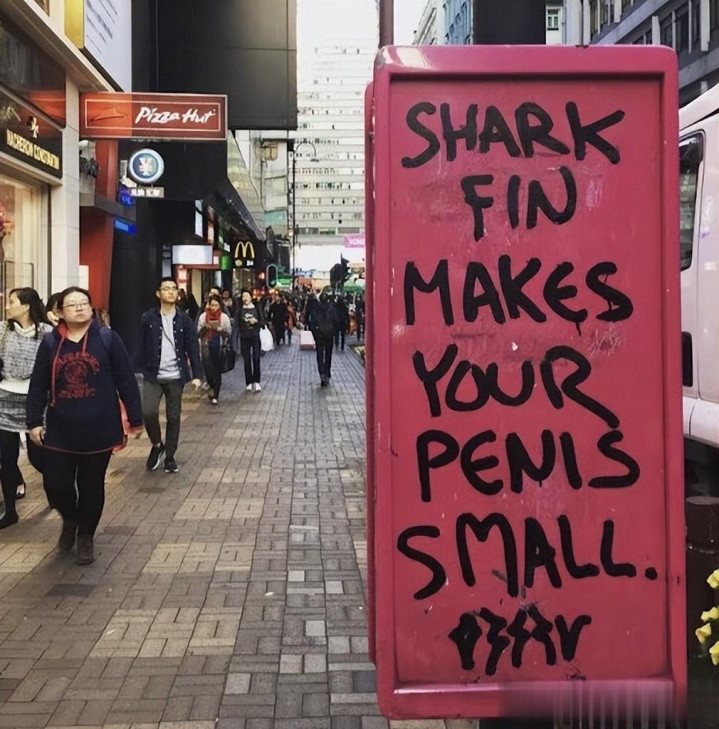 Pizza Hut
VACHERON CONSTANTIN
SHARK
FIN
MAKES
YOUR
PENIS
SMALL.